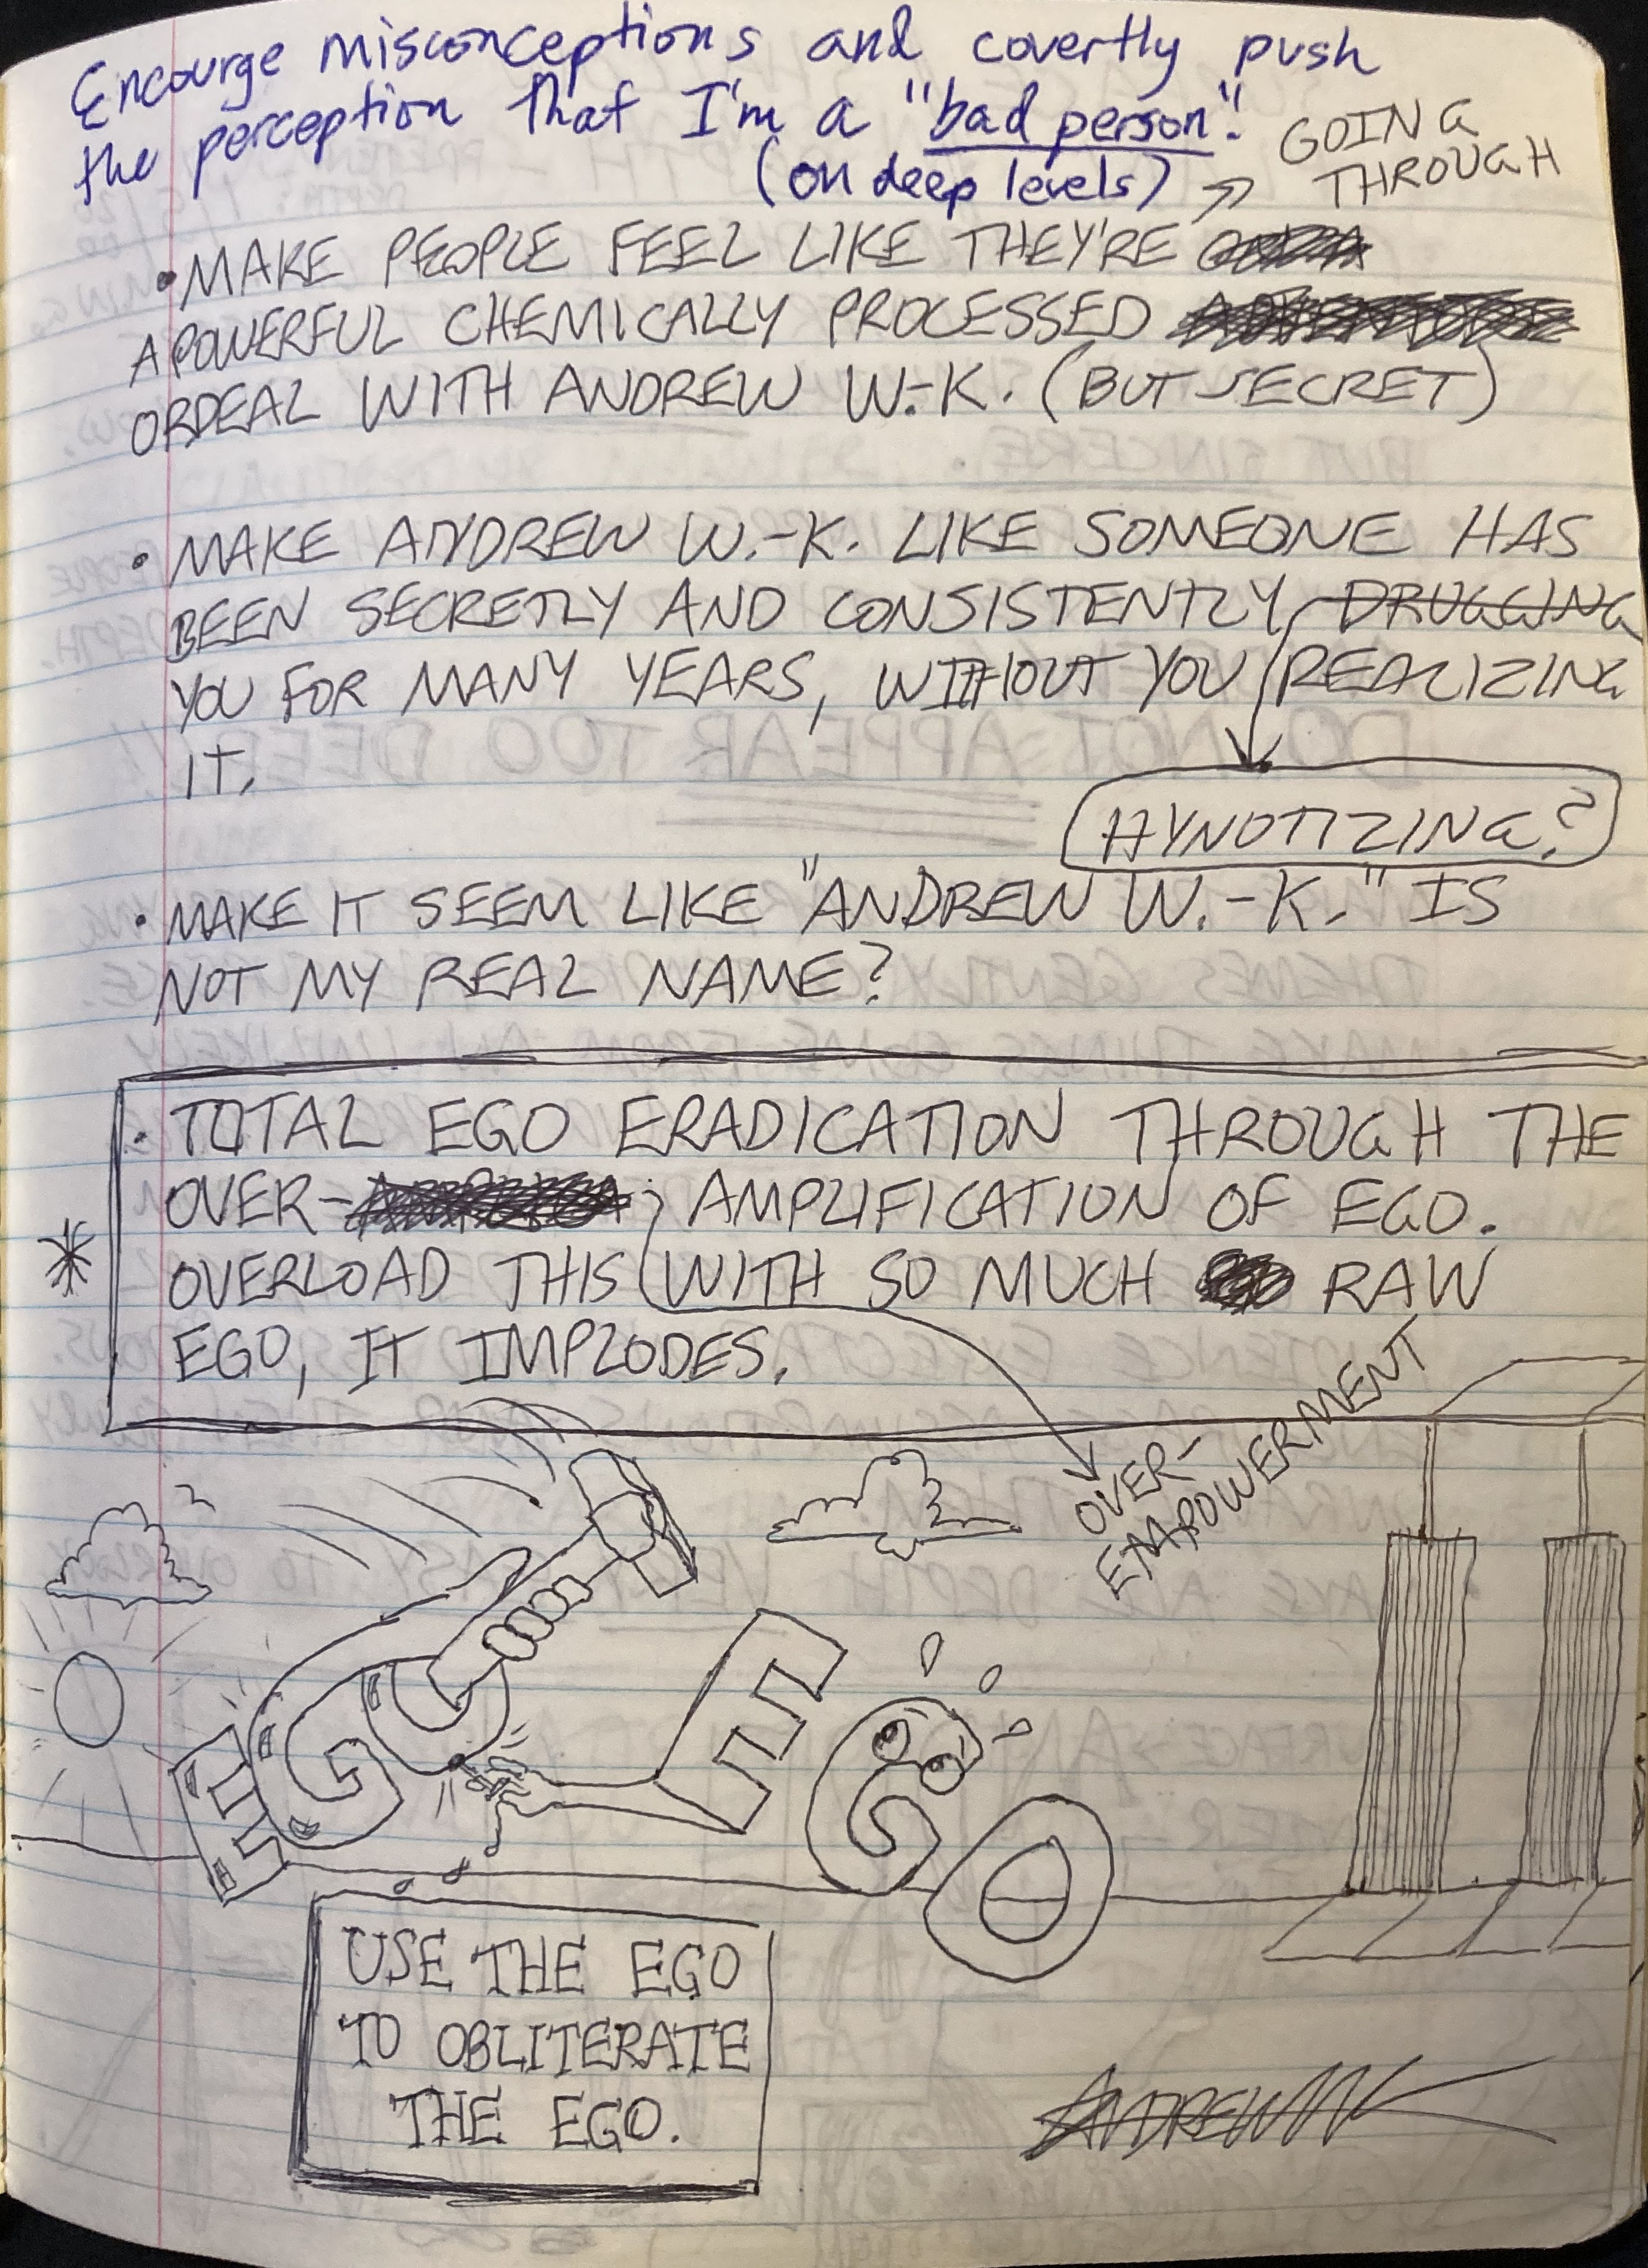 Encourge misconceptions and covertly push
the perception that I'm a "bad person".
(on deep levels)
GOING
THROUGH
• MAKE PEOPLE FEEL LIKE THEY'RE
A POWERFUL CHEMICALLY PROCESSED
ORDEAL WITH ANDREW W.-K. (BUT SECRET)
• MAKE ANDREW W.-K. LIKE SOMEONE HAS
BEEN SECRETLY AND CONSISTENTLY DRUGGING
YOU FOR MANY YEARS, WITHOUT YOU REALIZING
IT.
HYNOTIZING?
• MAKE IT SEEM LIKE "ANDREW W.-K." IS
NOT MY REAL NAME?
• TOTAL EGO ERADICATION THROUGH THE
OVER- AMPLIFICATION OF EGO.
* OVERLOAD THIS WITH SO MUCH RAW
EGO, IT IMPLODES.
OVER-
EMPOWERMENT
EGO
EGO
USE THE EGO
TO OBLITERATE
THE EGO.
ANDREW WK